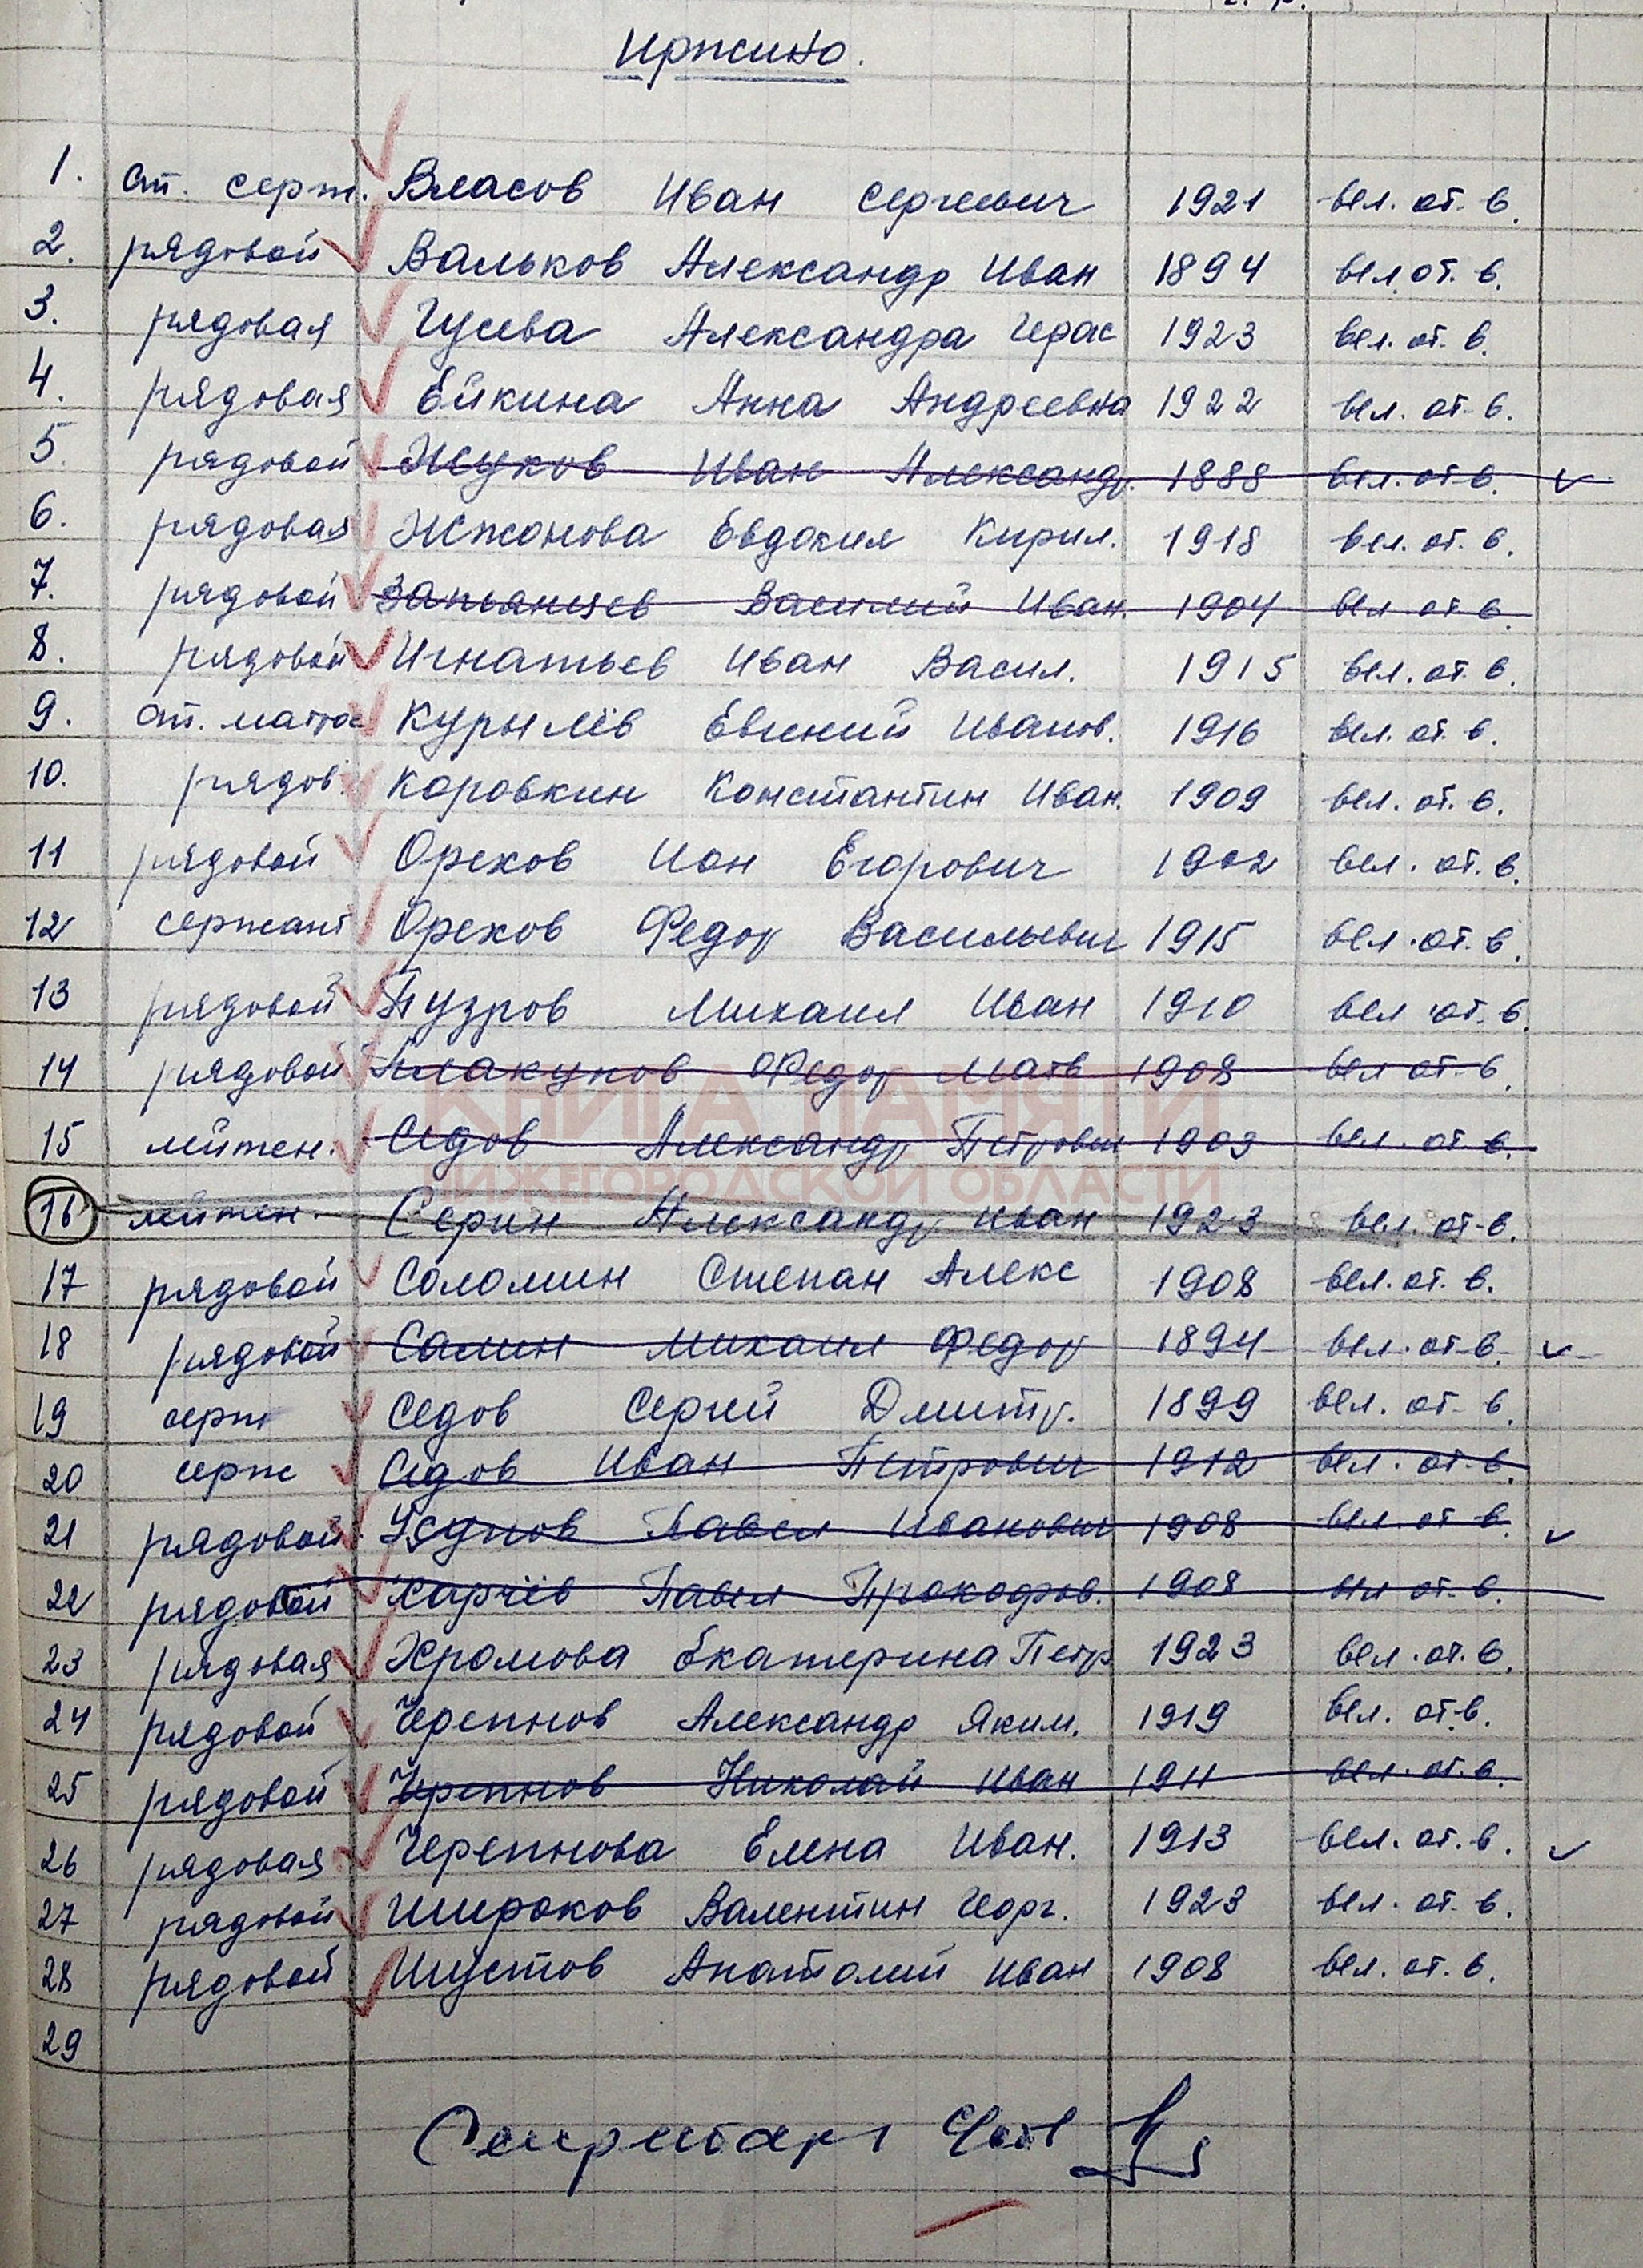 Иржино.
1. ст. серж. Власов Иван Сергеевич 1921 вел. от. в.
2. рядовой Вальков Александр Иван 1894 вел. от. в.
3. рядовая Гусева Александра Герас 1923 вел. от. в.
4. рядовая Ейкина Анна Андреевна 1922 вел. от. в.
5. рядовой Жуков Иван Александр. 1888 вел. от в.
6. рядовая Жжонова Евдокия Кирил. 1918 вел. от. в.
7. рядовой Запьянцев Василий Иван. 1904 вел от в.
8. рядовой Игнатьев Иван Васил. 1915 вел. от. в.
9. ст. матрос Курылёв Евгений Иванов. 1916 вел. от. в.
10. рядов. Коровкин Константин Иван. 1909 вел. от. в.
11 рядовой Орехов Ион Егорович 1902 вел. от. в.
12 сержант Орехов Федор Васильевич 1915 вел. от. в.
13 рядовой Пузров Михаил Иван 1910 вел от. в.
14 рядовой Плакунов Федор Матв 1908 вел от. в.
КНИГА ПАМЯТИ
15 лейтен. Седов Александр Петрович 1903 вел. от. в.
НИЖЕГОРОДСКОЙ ОБЛАСТИ
16 лейтен. Серин Александр Иван 1923 вел. от. в.
17 рядовой Соломин Степан Алекс 1908 вел. от. в.
18 рядовой Салин Михаил Федор 1894 вел. от. в.
19 серж Седов Сергей Дмитр. 1899 вел. от. в.
20 серж Седов Иван Петрович 1912 вел. от. в.
21 рядовой Усупов Павел Иванович 1908 вел. от в.
22 рядовой Харчёв Павел Прокофов. 1908 вел от. в.
23 рядовая Хромова Екатерина Петр 1923 вел. от. в.
24 рядовой Черепнов Александр Яким. 1919 вел. от. в.
25 рядовой Черепнов Николай Иван 1911 вел. от. в.
26 рядовая Черепнова Елена Иван. 1913 вел. от. в.
27 рядовой Широков Валентин Георг. 1923 вел. от. в.
28 рядовой Шустов Анатолий Иван 1908 вел. от. в.
29
Секретарь